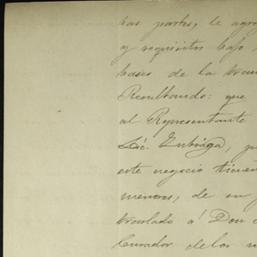 las partes, le agre
y requisitos bajo
bases de la tran
Resultando: que
al Representante
Lic. Zubiaga, p
este negocio tienen
menores, de un
traslado a' Don
Curador de los m